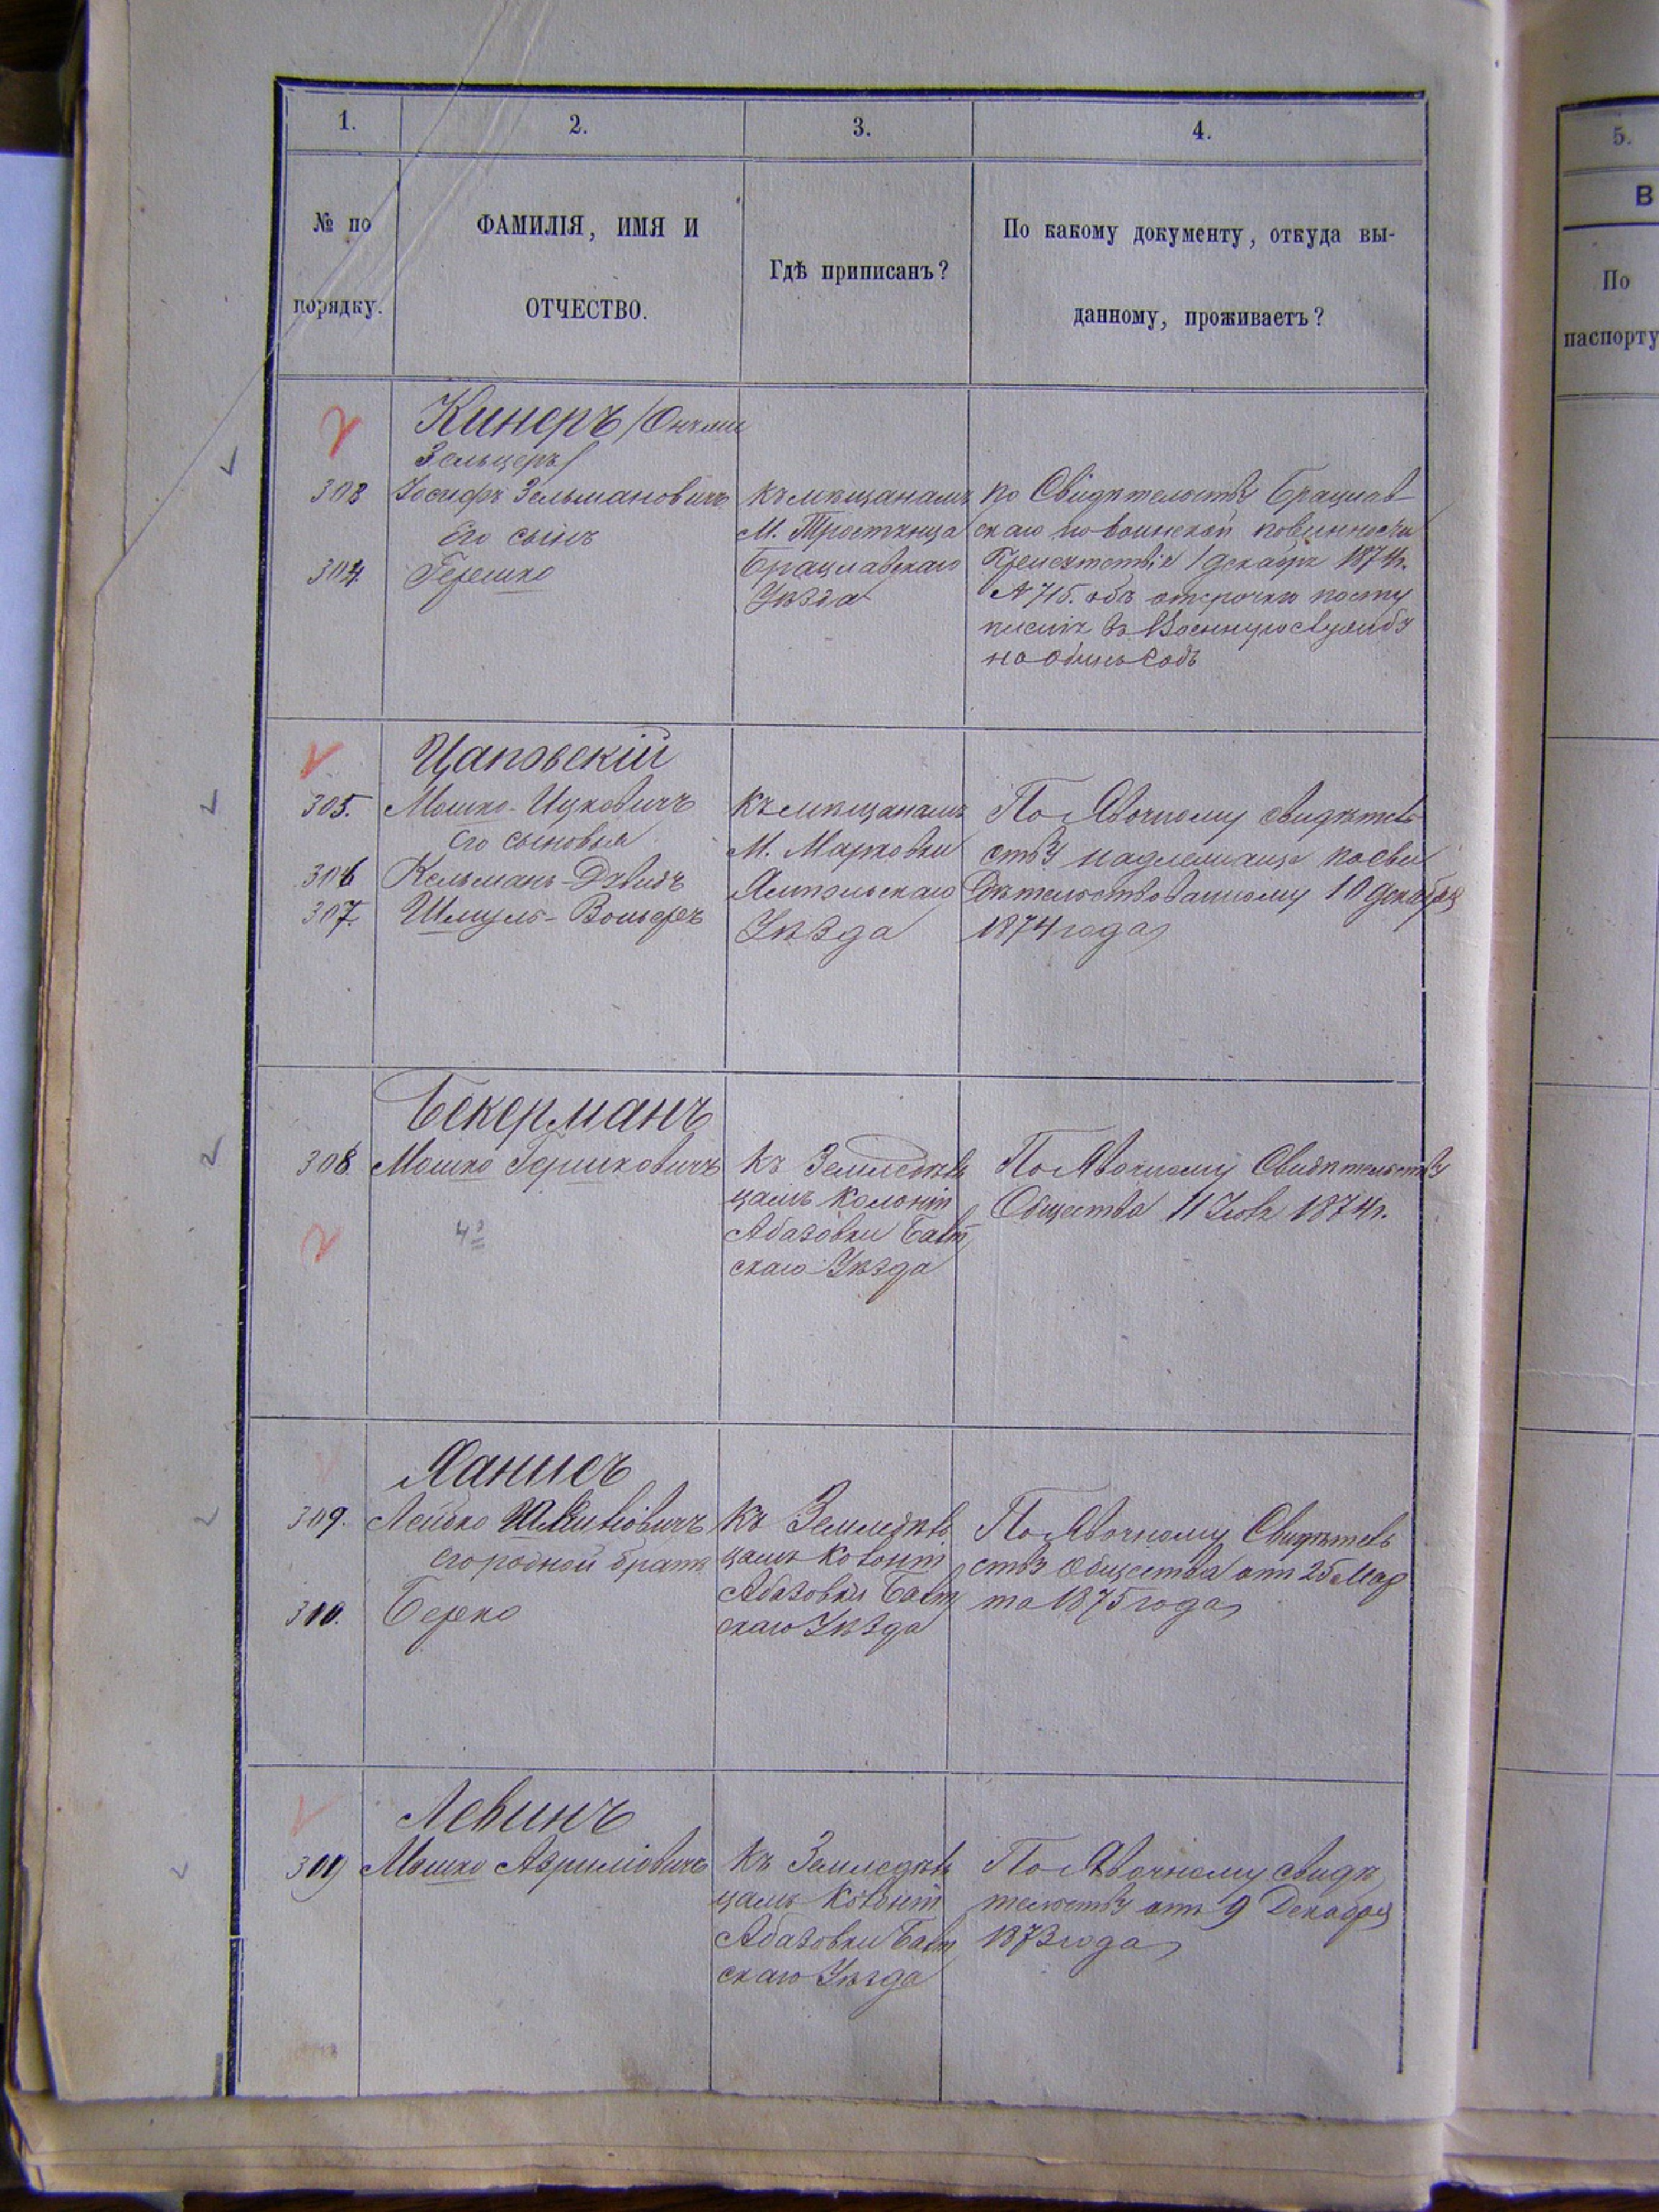 1.
2.
3.
4.
№ по
порядку.
ФАМИЛІЯ, ИМЯ И
ОТЧЕСТВО.
Гдѣ приписанъ?
По какому документу, откуда вы-
данному, проживаетъ?
5.
В
По
паспорту
Кинеръ /Онъже
Зельцеръ/
303 Іосифъ Зельмановичъ
Его сынъ
304 Гершко
къ мѣщанамъ
М. Тростянца
Брацлавскаго
Уѣзда
по Свидѣтельству Брацлав
скаго по воинской повинности
Присутствія 1 декабря 1874 г.
№ 715. объ отсрочкѣ посту
пленія въ Военную службу
на одинъ годъ
Цаповскій
305. Мошко-Ицковичъ
его сыновья
306 Кельманъ-Давидъ
307. Шмуль-Вольфъ
къ мѣщанамъ
М. Марковки
Ямпольскаго
Уѣзда
По Явочному свидѣтель
ству надлежаще посви
дѣтельствованному 10 декабря
1874 года
Бекерманъ
308 Мошко Гершковичъ
4
къ Земледѣль
цамъ колоніи
Абазовки Балт
скаго Уѣзда
По Явочному Свидѣтельству
Общества 11 1874 г.
309. Лейбко
его родной братъ
310. Берко
къ Земледѣль
цамъ колоніи
Абазовки Балт
скаго Уѣзда
По Явочному Свидѣтель
ству Общества отъ 25 Мар
та 1875 года
Левинъ
311 Мошко Аврумовичъ
къ Земледѣль
цамъ колоніи
Абазовки Балт
скаго Уѣзда
По Явочному свидѣ
тельству отъ 9 Декабря
1873 года